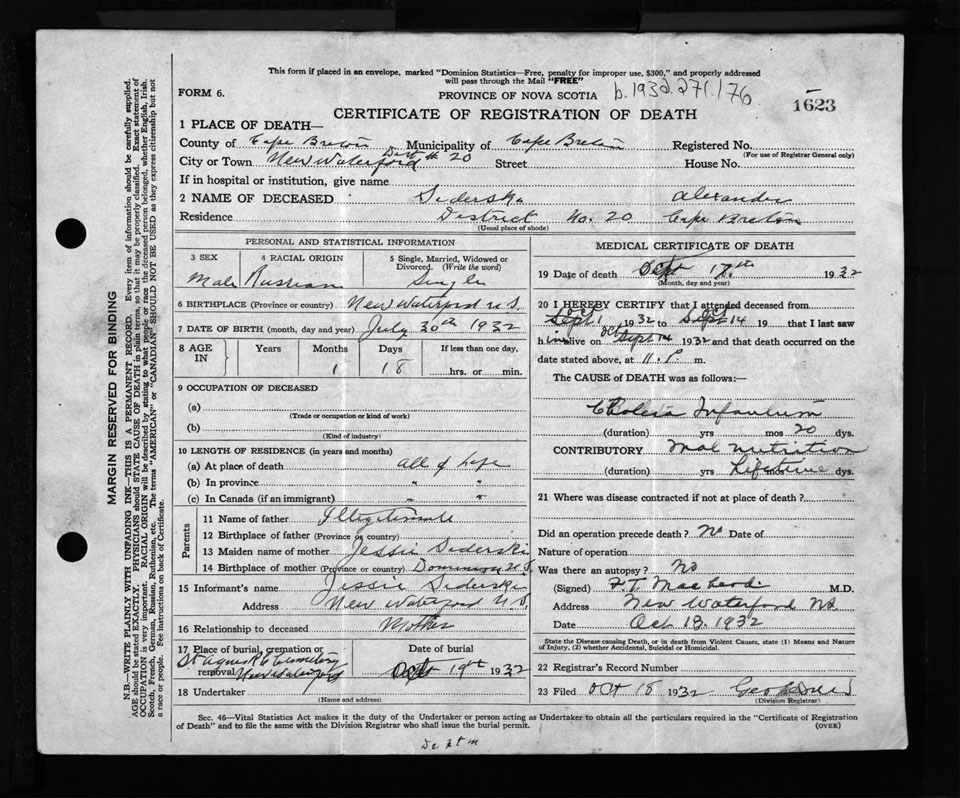 This form if placed in an envelope, marked "Dominion Statistics—Free, penalty for improper use, $300," and properly addressed
will pass through the Mail "FREE"
FORM 6. PROVINCE OF NOVA SCOTIA b.1932.271.176
1623
CERTIFICATE OF REGISTRATION OF DEATH
1 PLACE OF DEATH—
County of Cape Breton Municipality of Cape Breton Registered No.
(For use of Registrar General only)
City or Town New Waterford Dist # 20 Street House No.
If in hospital or institution, give name
2 NAME OF DECEASED Siderska Alexander
Residence District No. 20 Cape Breton
(Usual place of abode)
PERSONAL AND STATISTICAL INFORMATION
3 SEX 4 RACIAL ORIGIN 5 Single, Married, Widowed or
Divorced. (Write the word)
Male Russian Single
6 BIRTHPLACE (Province or country) New Waterford N.S.
7 DATE OF BIRTH (month, day and year) July 30th 1932
8 AGE IN Years Months Days If less than one day.
1 18 hrs. or min.
9 OCCUPATION OF DECEASED
(a)
(Trade or occupation or kind of work)
(b)
(Kind of industry)
10 LENGTH OF RESIDENCE (in years and months)
(a) At place of death all of life
(b) In province " "
(c) In Canada (if an immigrant) " "
Parents
11 Name of father Illegitimate
12 Birthplace of father (Province or country)
13 Maiden name of mother Jessie Siderski
14 Birthplace of mother (Province or country) Dominion N.S.
15 Informant's name Jessie Siderska
Address New Waterford N.S.
16 Relationship to deceased Mother
17 Place of burial, cremation or removal Date of burial
St Agnes R C Cemetery
New Waterford Oct 19th 1932
18 Undertaker
(Name and address)
MEDICAL CERTIFICATE OF DEATH
19 Date of death Sept 17th 1932
(Month, day and year)
20 I HEREBY CERTIFY that I attended deceased from
Oct Oct
Sept 1 1932 to Sept 14 19 that I last saw
Oct
him alive on Sept 14 1932 and that death occurred on the
date stated above, at 11. P. m.
The CAUSE of DEATH was as follows:—
Cholera Infantum
(duration) yrs mos 20 dys.
CONTRIBUTORY Mal nutrition
(duration) yrs Lifetime mos dys.
21 Where was disease contracted if not at place of death?
Did an operation precede death? No Date of
Nature of operation
Was there an autopsy? No
(Signed) F.T. MacLeod M.D.
Address New Waterford NS
Date Oct 18. 1932
State the Disease causing Death, or in death from Violent Causes, state (1) Means and Nature
of Injury, (2) whether Accidental, Suicidal or Homicidal.
22 Registrar's Record Number
23 Filed Oct 18 1932 Geo
(Division Registrar)
Sec. 46—Vital Statistics Act makes it the duty of the Undertaker or person acting as Undertaker to obtain all the particulars required in the "Certificate of Registration
of Death" and to file the same with the Division Registrar who shall issue the burial permit. (OVER)
MARGIN RESERVED FOR BINDING
N.B.—WRITE PLAINLY WITH UNFADING INK—THIS IS A PERMANENT RECORD. Every item of information should be carefully supplied.
AGE should be stated EXACTLY. PHYSICIANS should STATE CAUSE OF DEATH in plain terms, so that it may be properly classified. Exact statement of
OCCUPATION is very important. RACIAL ORIGIN will be described by stating to what people or race the deceased person belonged, whether English, Irish,
Scotch, French, German, Russian, Ruthenian, etc. The terms "AMERICAN" or "CANADIAN" SHOULD NOT BE USED as they express citizenship but not
a race or people. See instructions on back of Certificate.